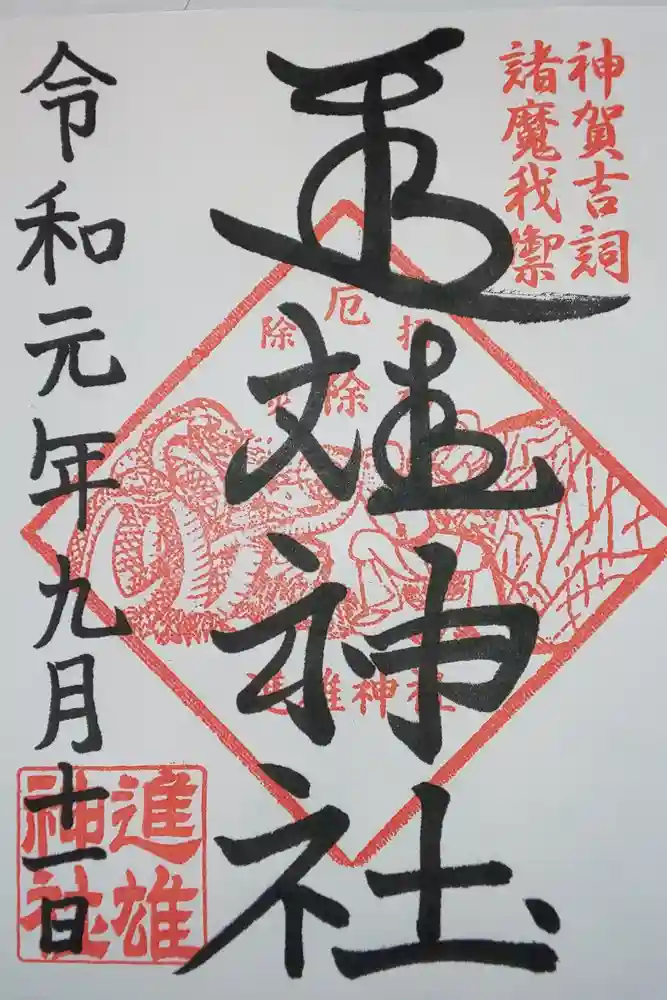 神賀吉詞
諸魔我禦
進雄神社
厄除
進雄神社
令和元年九月十一日
進雄
神社